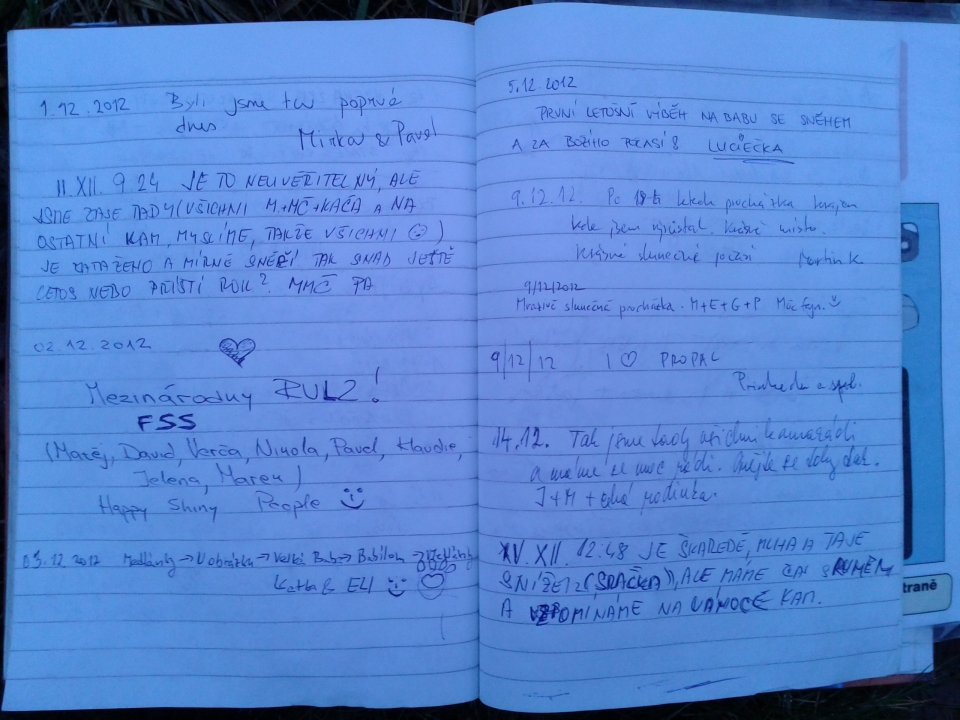 1.12.2012 Byli jsme tu poprvé
dnes
Mirka & Pavel
II. XII. 9.24 JE TO NEUVĚŘITELNÝ, ALE
JSME ZASE TADY (VŠICHNI M+MČ+KAČA A NA
OSTATNÍ KAM, MYSLÍME, TAKŽE VŠICHNI ☺)
JE ZATAŽENO A MÍRNĚ SNĚŽÍ TAK SNAD JEŠTĚ
LETOS NEBO PŘÍŠTÍ ROK? MMČ PA
02.12.2012
Mezinárodny RULZ!
FSS
(Matěj, David, Verča, Nikola, Pavel, Klaudie,
Jelena, Marek)
Happy Shiny People
03.12.2012 Medlánky → → Velká Baba → Babilon →
Katka & ELI
5.12.2012
PRVNÍ LETOŠNÍ VÝBĚH NA BABU SE SNĚHEM
A ZA BOŽÍHO POČASÍ! LUCIEČKA
9.12.12. Po 18ti letech procházka krajem
kde jsem vyrůstal. Krásné místo.
Krásné slunečné počasí Martin K
9/12/2012
Mrazivě slunečná procházka. M+E+G+P Moc fajn.
9/12/12 I ♡ PROPAL
a spol.
14.12. Tak jsme tady všichni kamarádi
a máme se moc rádi. Mějte se taky tak.
J+M + celá rodinka
XV. XII. 12.48 JE ŠKAREDĚ, MLHA A TAJE
SNÍŽEK (SRAČKA), ALE MÁME ČAJ S RUMEM
A VZPOMÍNÁME NA VÁNOCE KAM.
traně